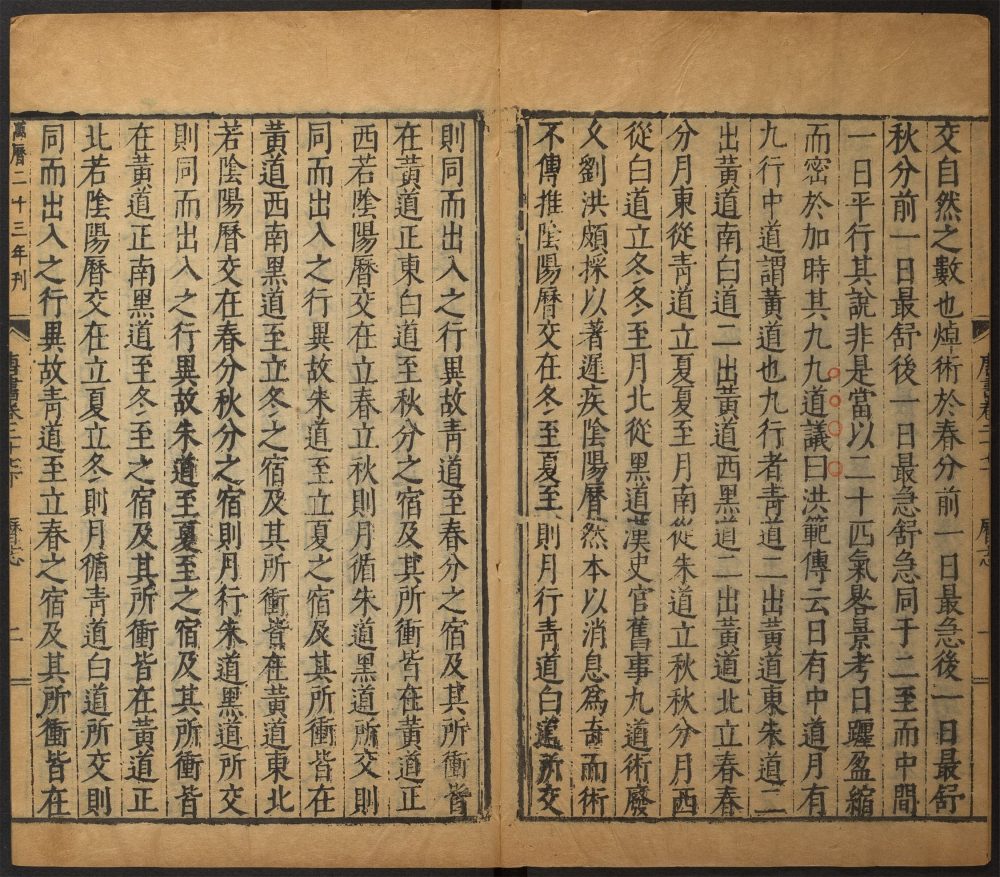 交自然之數也焯術於春分前一日最急後一日最舒
秋分前一日最舒後一日最急舒急同于二至而中間
一日平行其說非是當以二十四氣晷景考日躔盈縮
而密於加時其九九道議曰洪範傳云日有中道月有
九行中道謂黃道也九行者青道二出黃道東朱道二
出黃道南白道二出黃道西黑道二出黃道北立春春
分月東從青道立夏夏至月南從朱道立秋秋分月西
從白道立冬冬至月北從黑道漢史官舊事九道術廢
久劉洪頗採以著遲疾陰陽曆然本以消息爲奇而術
不傳推陰陽曆交在冬至夏至則月行青道白道所交
則同而出入之行異故青道至春分之宿及其所衝皆
在黃道正東白道至秋分之宿及其所衝皆在黃道正
西若陰陽曆交在立春立秋則月循朱道黑道所交則
同而出入之行異故朱道至立夏之宿及其所衝皆在
黃道西南黑道至立冬之宿及其所衝皆在黃道東北
若陰陽曆交在春分秋分之宿則月行朱道黑道所交
則同而出入之行異故朱道至夏至之宿及其所衝皆
在黃道正南黑道至冬至之宿及其所衝皆在黃道正
北若陰陽曆交在立夏立冬則月循青道白道所交則
同而出入之行異故青道至立春之宿及其所衝皆在
萬曆二十三年刊 唐書卷二十七 曆志 二